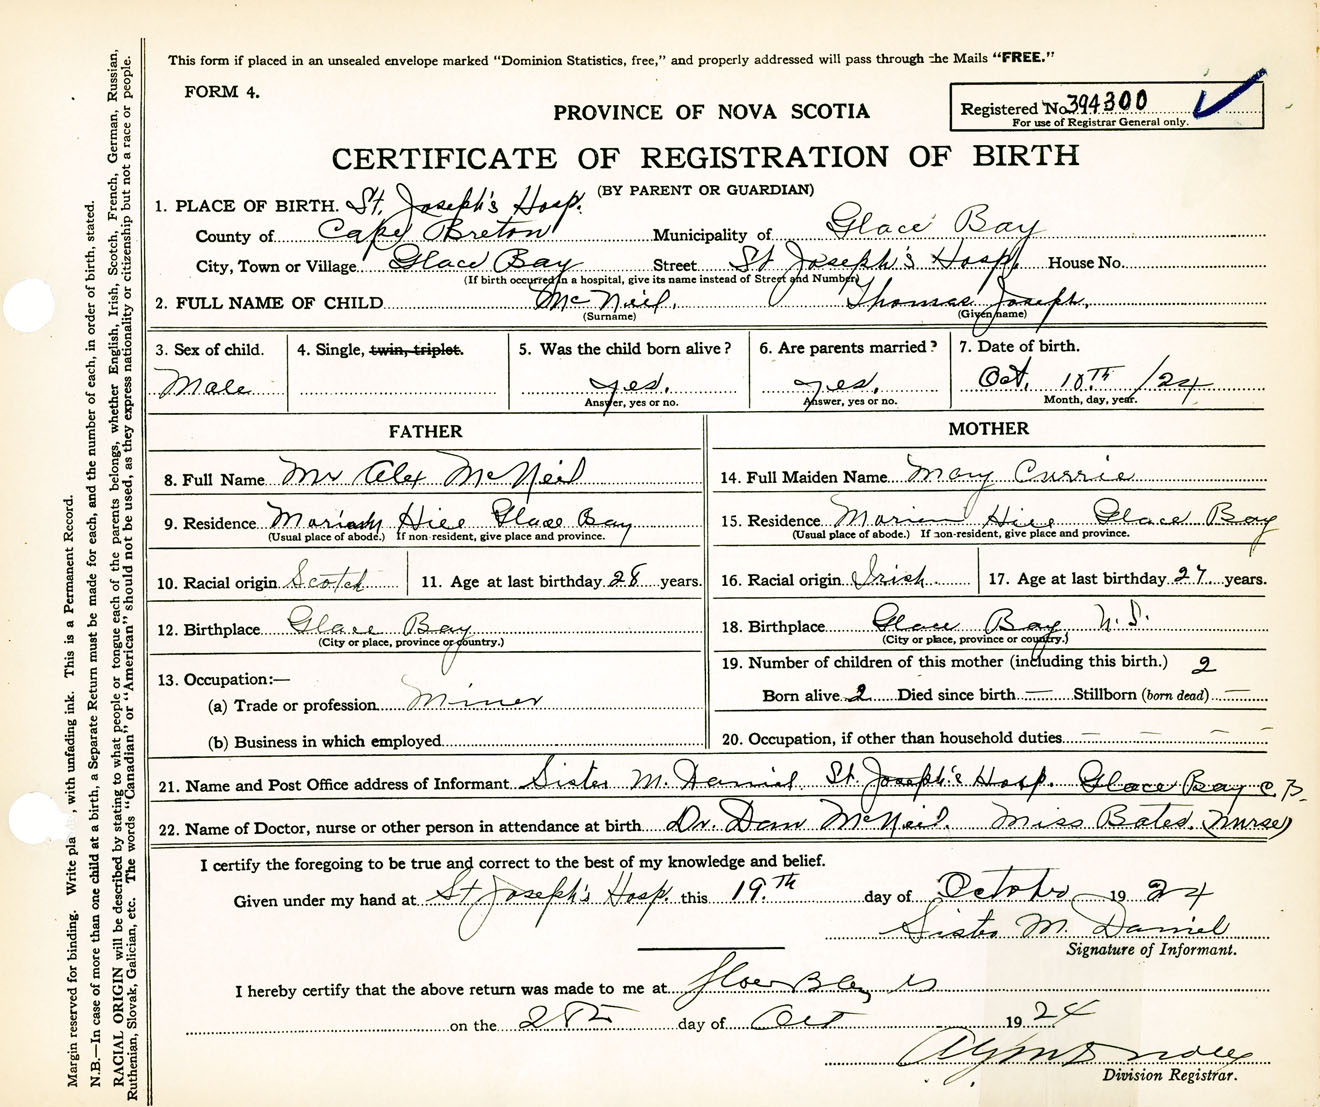 This form if placed in an unsealed envelope marked "Dominion Statistics, free," and properly addressed will pass through the Mails "FREE."
FORM 4.
Registered No. 394300
For use of Registrar General only.
PROVINCE OF NOVA SCOTIA
CERTIFICATE OF REGISTRATION OF BIRTH
(BY PARENT OR GUARDIAN)
1. PLACE OF BIRTH. St. Joseph's Hosp.
County of Cape Breton Municipality of Glace Bay
City, Town or Village Glace Bay Street St Joseph's Hosp. House No.
(If birth occurred in a hospital, give its name instead of Street and Number)
2. FULL NAME OF CHILD McNeil, Thomas Joseph,
(Surname) (Given name)
3. Sex of child. 4. Single, twin, triplet. 5. Was the child born alive? 6. Are parents married? 7. Date of birth.
Male yes. yes. Oct. 10th /24
Answer, yes or no. Answer, yes or no. Month, day, year.
FATHER MOTHER
8. Full Name Mr Alex McNeil 14. Full Maiden Name Mary Currie
9. Residence Hill Glace Bay 15. Residence Marien Hill Glace Bay
(Usual place of abode.) If non-resident, give place and province. (Usual place of abode.) If non-resident, give place and province.
10. Racial origin Scotch 11. Age at last birthday 28 years. 16. Racial origin Irish 17. Age at last birthday 27 years.
12. Birthplace Glace Bay 18. Birthplace Glace Bay N.S.
(City or place, province or country.) (City or place, province or country.)
13. Occupation:— 19. Number of children of this mother (including this birth.) 2
(a) Trade or profession Miner Born alive 2 Died since birth — Stillborn (born dead) —
(b) Business in which employed 20. Occupation, if other than household duties — — — —
21. Name and Post Office address of Informant Sister M. Daniel St. Joseph's Hosp. Glace Bay C.B.
22. Name of Doctor, nurse or other person in attendance at birth Dr. Dan McNeil. Miss Bates. (Nurse)
I certify the foregoing to be true and correct to the best of my knowledge and belief.
Given under my hand at St Joseph's Hosp. this 19th day of October 1924
Sister M. Daniel
Signature of Informant.
I hereby certify that the above return was made to me at Glace Bay NS
on the 28th day of Oct 1924
Division Registrar.
Margin reserved for binding. Write pla , with unfading ink. This is a Permanent Record.
N.B.—In case of more than one child at a birth, a Separate Return must be made for each, and the number of each, in order of birth, stated.
RACIAL ORIGIN will be described by stating to what people or tongue each of the parents belongs, whether English, Irish, Scotch, French, German, Russian,
Ruthenian, Slovak, Galician, etc. The words "Canadian" or "American" should not be used, as they express nationality or citizenship but not a race or people.